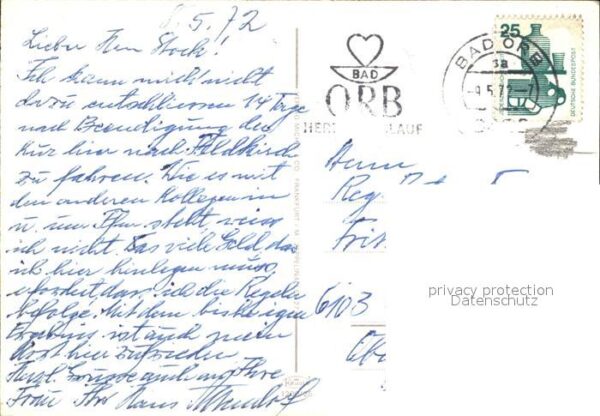 8.5.72
Lieber Herr Stock!
Ich kann mich nicht
dazu entschliessen 14 Tage
nach Beendigung der
Kur hier nach Feldkirch
zu fahren. Wie es mit
den anderen Kollegen in
u. um Ffm steht, weiss
ich nicht. Das viele Geld das
ich hier hinlegen muss,
erfordert, dass ich die Regeln
befolge. Mit dem bisherigen
Ergebnis ist auch mein
Arzt hier zufrieden.
Herzl. Grüsse auch an Ihre
Frau Ihr Hans
BAD
ORB
HER LAUF
BAD ORB
-9.5.72-7
25
DEUTSCHE BUNDESPOST
Herrn
Reg
Frit
6103
privacy protection
Datenschutz